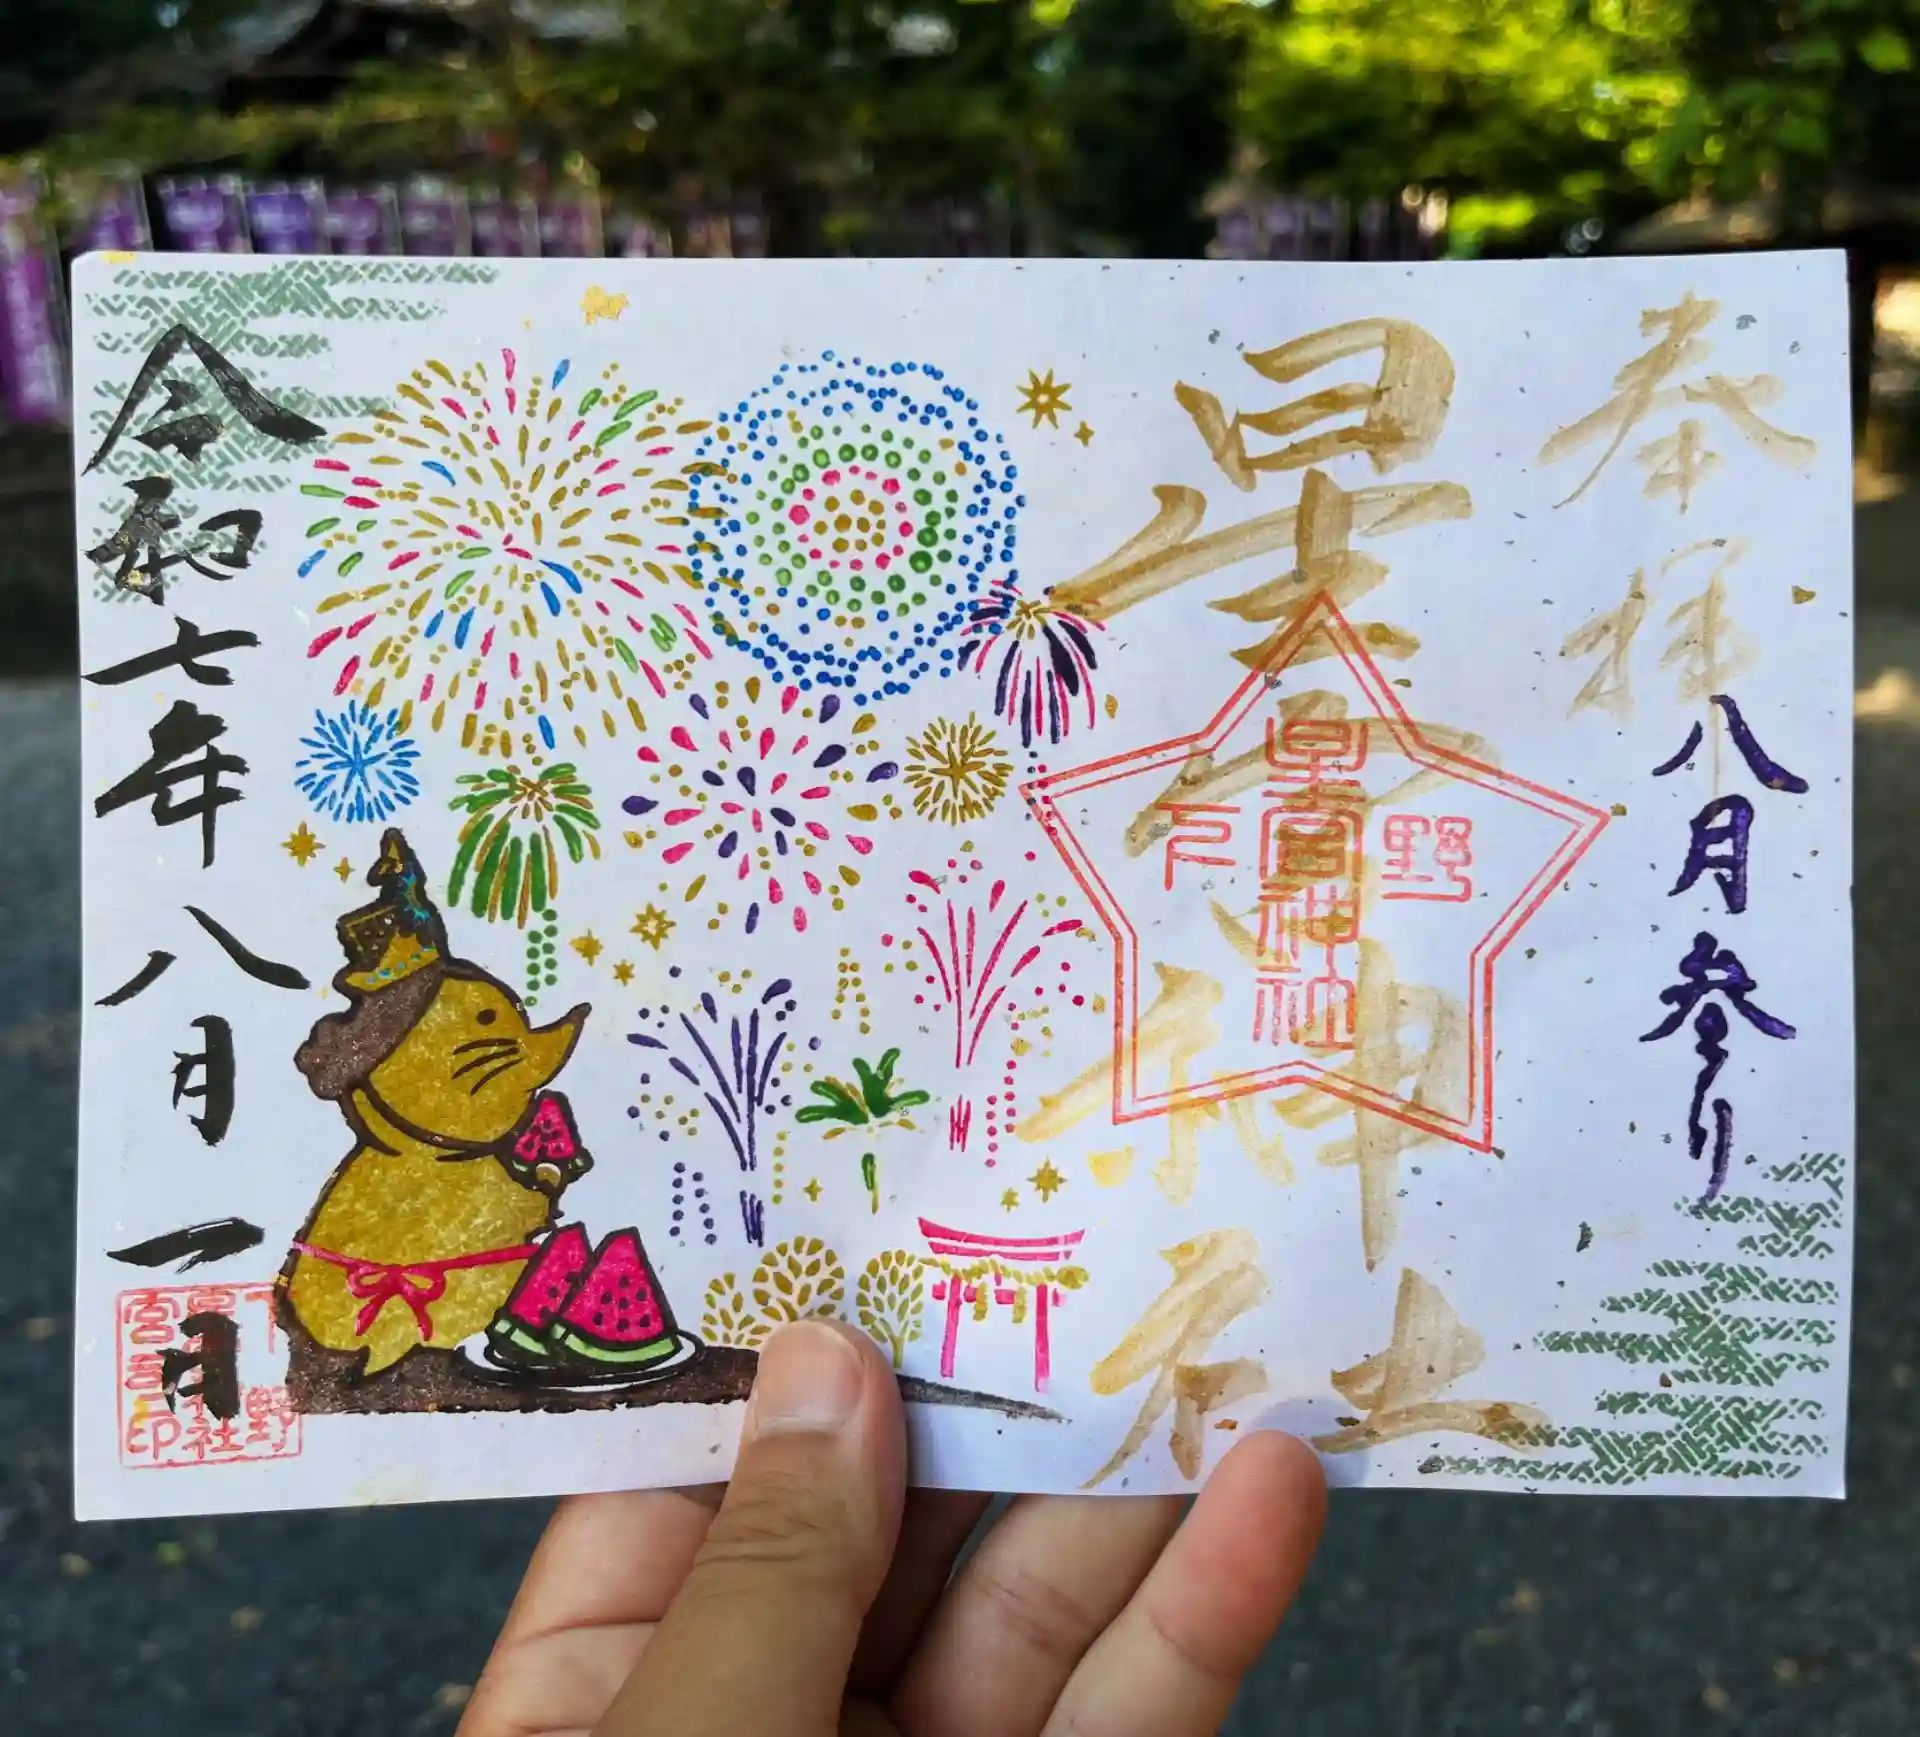 奉拝
八月参り
星宮神社
下野
星宮神社
令和七年八月一日
下野
星宮神社
宮司之印